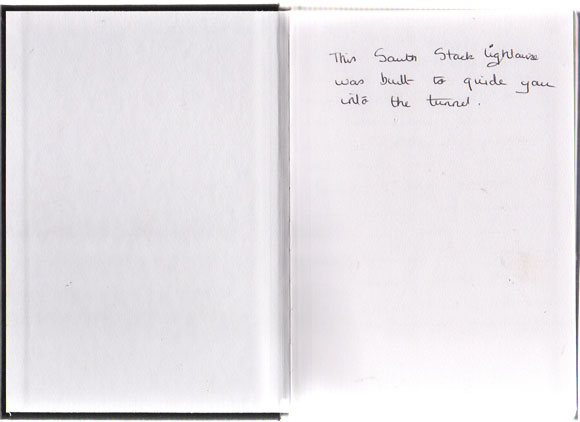 This South Stack lighthouse
was built to guide you
into the tunnel.